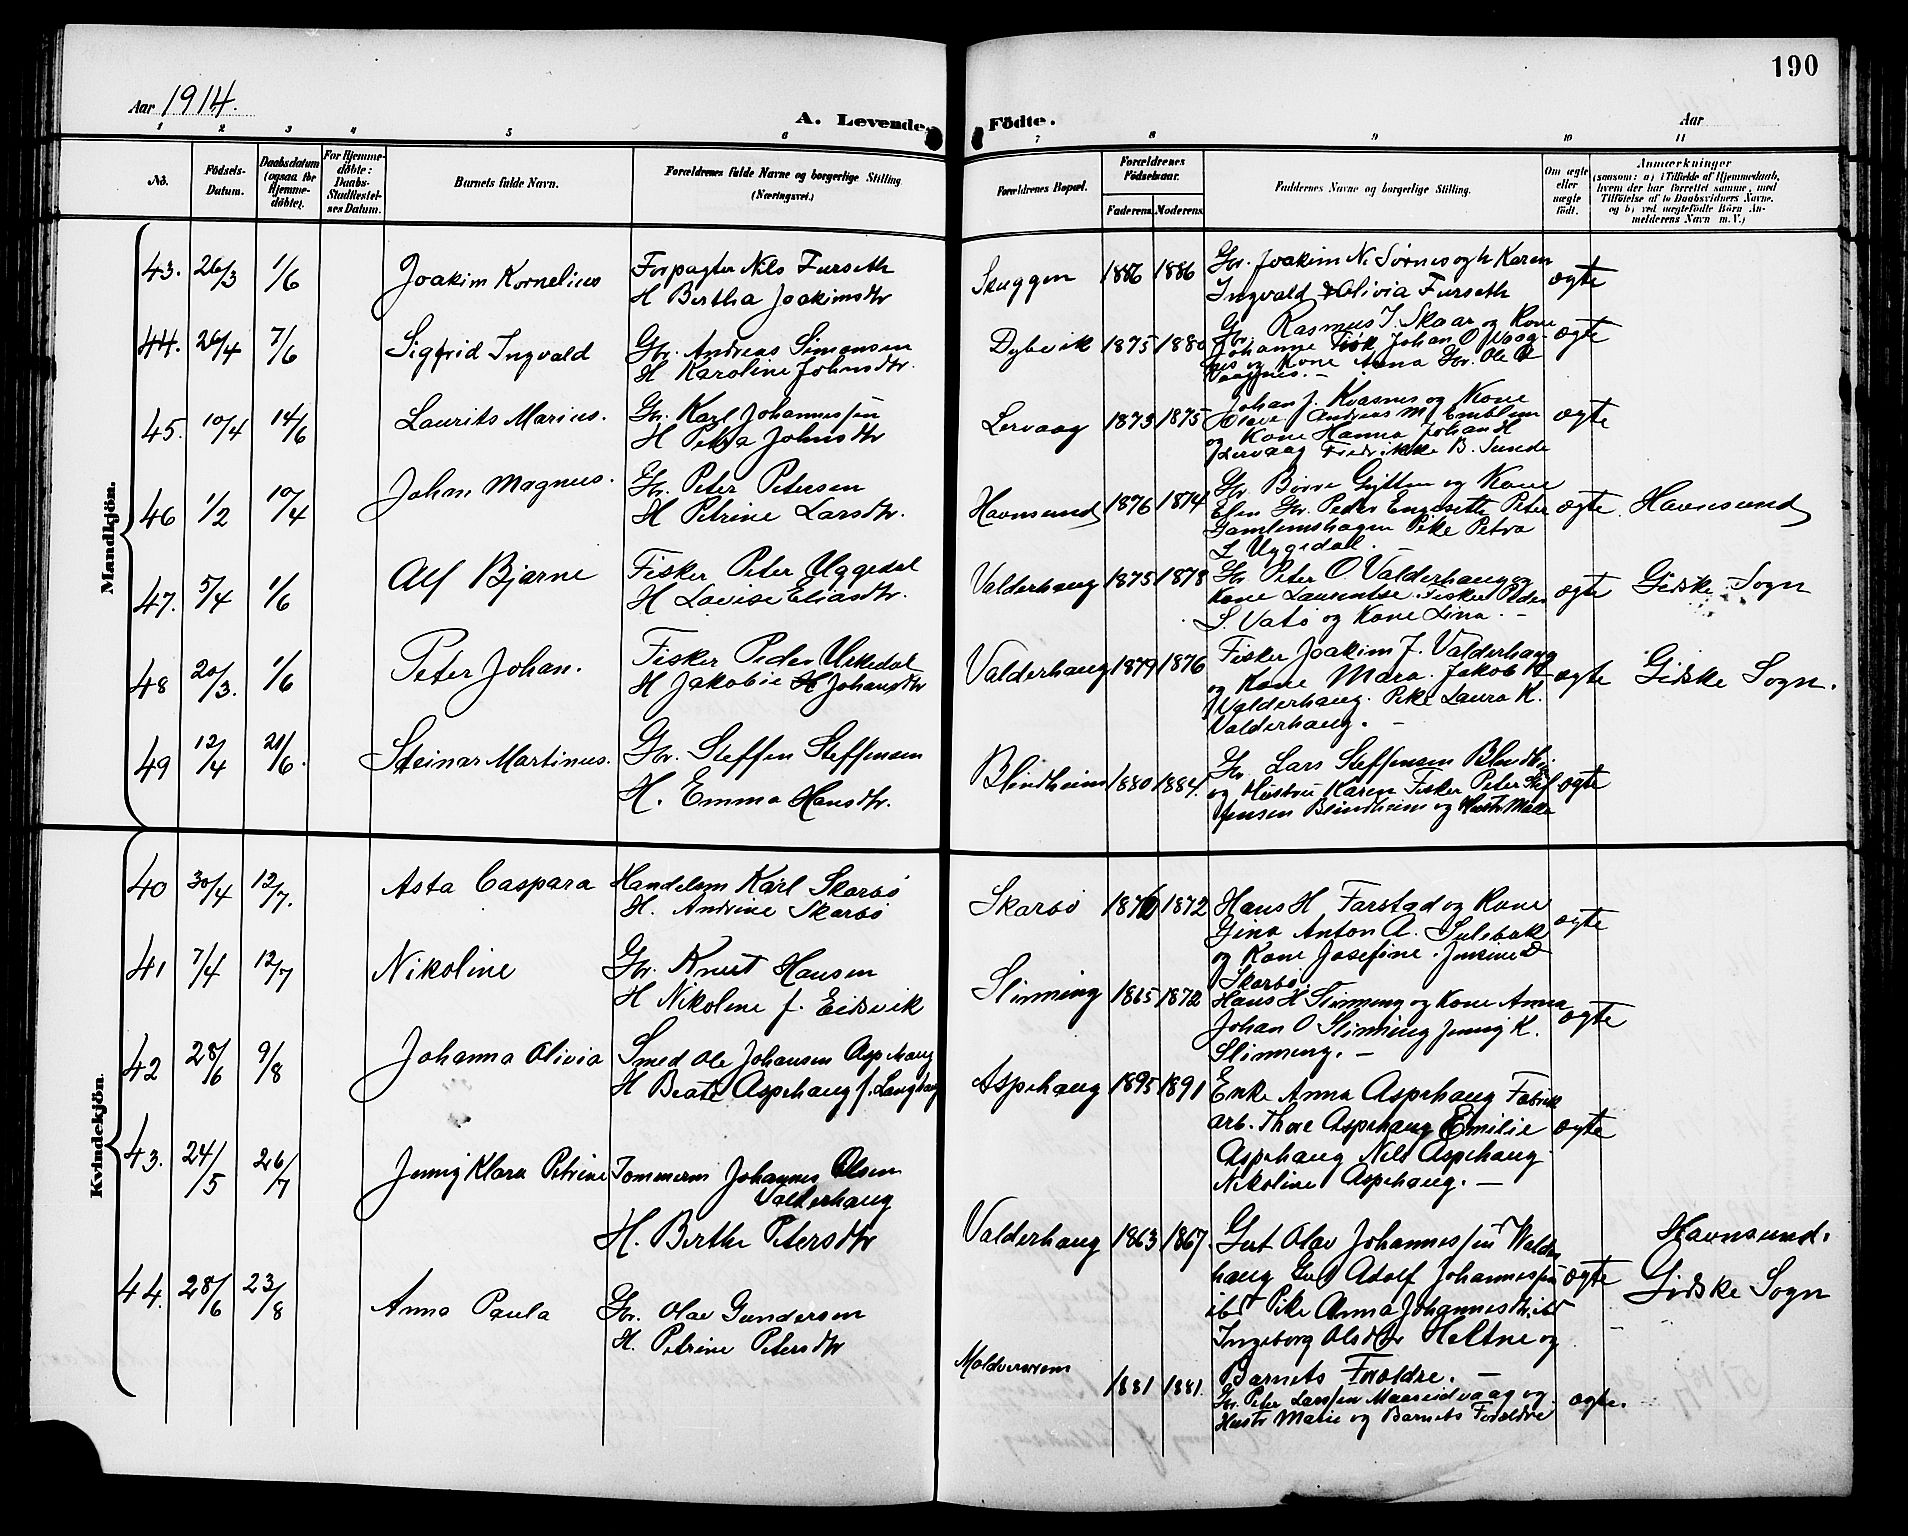 190
Aar 1914.
A. Levende Födte.
Aar
1 2 3 4 5 6 7 8 9 10 11
No.
Födsels-Datum.
Daabsdatum (ogsaa for Hjemme-döbte).
For Hjemme-döbte: Daabs-Stadfæstel-ses Datum.
Barnets fulde Navn.
Forældrenes fulde Navne og borgerlige Stilling (Næringsvei.)
Forældrenes Bopæl.
Forældrenes Födselsaar.
Faderens. Moderens.
Faddernes Navne og borgerlige Stilling.
Om ægte eller uægte födt.
Anmærkninger
(saasom: a) i Tilfælde af Hjemmedaab,
hvem der har forrettet samme, med
Tilföielse af to Daabsvidners Navne.
og b) ved uægtefödte Börn An-
melderens Navn m. V.)
Mandkjön.
43. 26/3 1/6 Joakim Kornelius
Forpagter Nils Furseth
H Bertha Joakimsdtr
Skuggen 1886 1886
Gbr. Joakim N. Sørnes og h Karen
Ingvald & Olivia Furseth
ægte
44. 26/4 7/6 Sigfrid Ingvald
Gbr. Andreas Simonsen
H Karoline Johnsdtr.
Dybvik 1875 1880
Gbr. Rasmus I. Skaar og Kone
Johanne Fisk Johan O Vaag-
nes og Kone Anna Gbr. Ole
Vaagnes. –
ægte
45. 10/4 14/6 Laurits Marius.
Gbr. Karl Johannessen
H Petra Johnsdtr
Lervaag 1873 1875
Johan J. Kvasnes og Kone
Olave Andreas M. Emblem
og Kone Hanna Johan H
Lervaag Fredrikke B. Sunde
ægte
46 1/2 10/4 Johan Magnus.
Gbr. Peter Petersen
H Petrine Larsdtr.
Havnsund 1876 1874
Gbr Børre Gjytten og Kone
Elen Gbr. Peder Engesette Peter
Gamlemshagen Pike Petra
L Uggedal.
ægte. Havnsund
47. 5/4 1/6 Alf Bjarne
Fisker Peter Uggedal
H Lovise Eliasdtr.
Valderhaug 1875 1878
Gbr Peter O. Valderhaug og
Kone Laurentse. Fisker Peder
S. Vatø og Kone Lina. –
ægte Gidske Sogn
48 20/3. 1/6 Peter Johan.
Fisker Peder Urkedal
H Jakobie Johansdtr
Valderhaug 1879 1876
Fisker Joakim J. Valderhaug
og Kone Mara. Jakob
Valderhaug. Pike Laura K.
Valderhaug. –
ægte Gidske Sogn.
49 12/4 21/6. Steinar Martinus.
Gbr. Steffen Steffensen
H. Emma Hansdtr.
Blindheim 1880 1884.
Gbr. Lars Steffensen Blindhei
og Hustru Karen Fisker Peter Stef
fensen Blindheim og Hustr
ægte
Kvindekjön.
40 30/4 12/7. Asta Caspara
Handelsm Karl Skarbø
H. Andrine Skarbø
Skarbø 1876 1872
Hans H Farstad og Kone
Gina Anton A. Sulebak
og Kone Josefine.
Skarbø.
ægte
41 7/4 12/7 Nikoline
Gbr. Knut Hansen
H Nikoline f. Eidsvik
Slinning 1865 1872
Hans H Slinning og Kone Anna
Johan O Slinning Jenny K.
Slinning. –
ægte
42 28/6 9/8 Johanna Olivia
Smed Ole Johansen Aspehaug
H Beate Aspehaug f.
Aspehaug 1895 1891
Enke Anna Aspehaug Fabrik
arb. Thore Aspehaug Emilie
Aspehaug Nils Aspehaug
Nikoline Aspehaug. –
ægte
43. 24/5 26/7 Jenny Klara Petrine
Tommerm Johannes Olsen
Valderhaug
H. Berthe Petersdtr
Valderhaug 1863 1867.
Gut Olav Johannessen Valder
haug Gut Adolf Johannessen
ibd Pike Anna Johannesdtr. ibd
Ingeborg Olsdtr Heltne og
Barnets Forældre. –
ægte
Havnsund.
Gidske Sogn
44. 28/6 23/8 Anna Paula
Gbr. Olav Gundersen
H. Petrine Petersdtr
Moldversrem 1881 1881.
Gbr. Peter Larssen Maareidvaag og
Hustr Marie og Barnets Foræld­re
ægte.